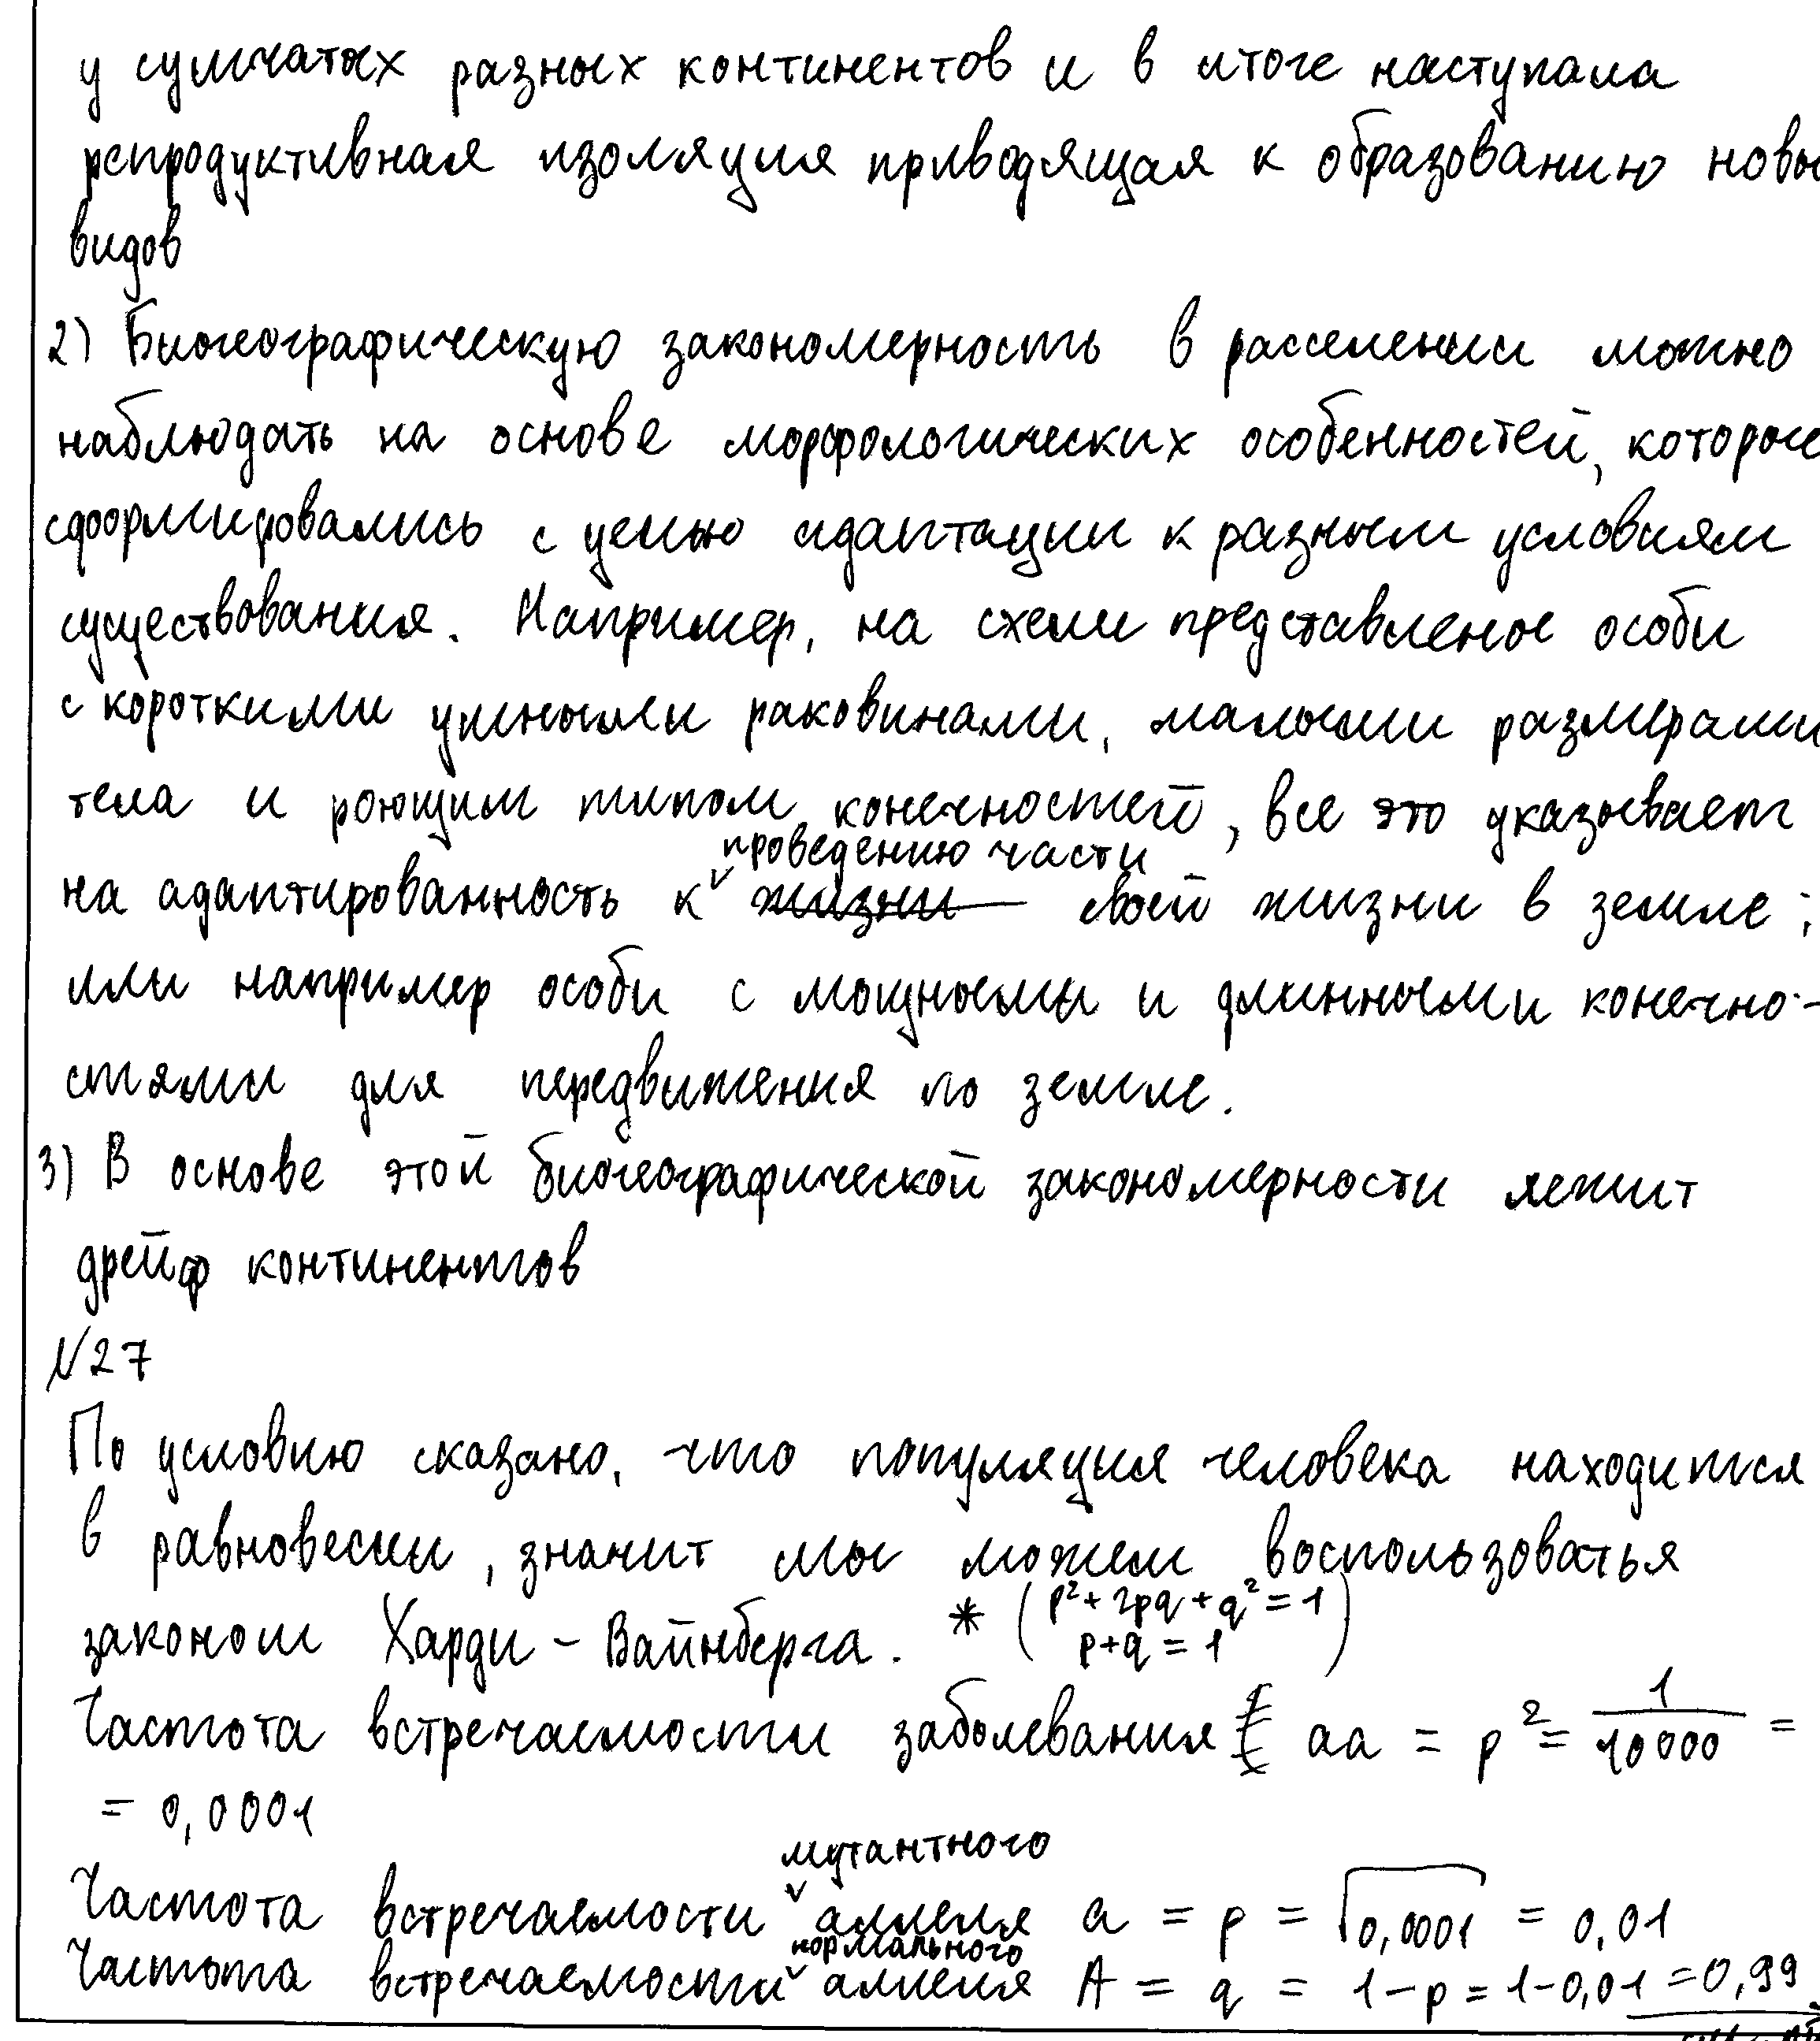 у сумчатых разных континентов и в итоге наступала
репродуктивная изоляция приводящая к образованию новы
видов
2) Биогеографическую закономерность в расселении можно
наблюдать на основе морфологических особенностей, которые
сформировались с целью адаптации к разным условиям
существования. Например, на схеме представленые особи
с короткими ушными раковинами, малыми размерами
тела и роющим типом конечностей, все это указывает
проведению части
на адаптированность к жизни своей жизни в земле;
или например особи с мощными и длинными конечно-
стями для передвижения по земле.
3) В основе этой биогеографической закономерности лежит
дрейф континентов
№27
По условию сказано, что популяция человека находится
в равновесии, значит мы можем воспользоваться
законом Харди - Вайнберга. * (p²+2pq+q²=1
p+q=1)
Частота встречаемости заболевания aa = p² = 1/10000 =
= 0,0001
мутантного
Частота встречаемости аллеля a = p = √0,0001 = 0,01
нормального
Частота встречаемости аллеля A = q = 1-p = 1-0,01 = 0,99